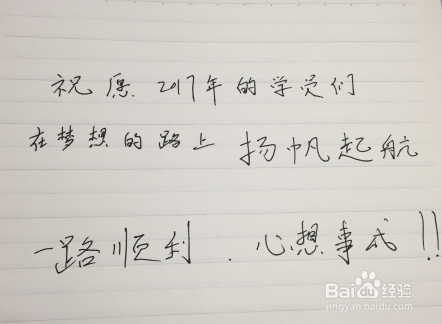 祝愿 2017年的学员们
在梦想的路上 扬帆起航
一路顺利．心想事成!!
Baidu经验
jingyan.baidu.com